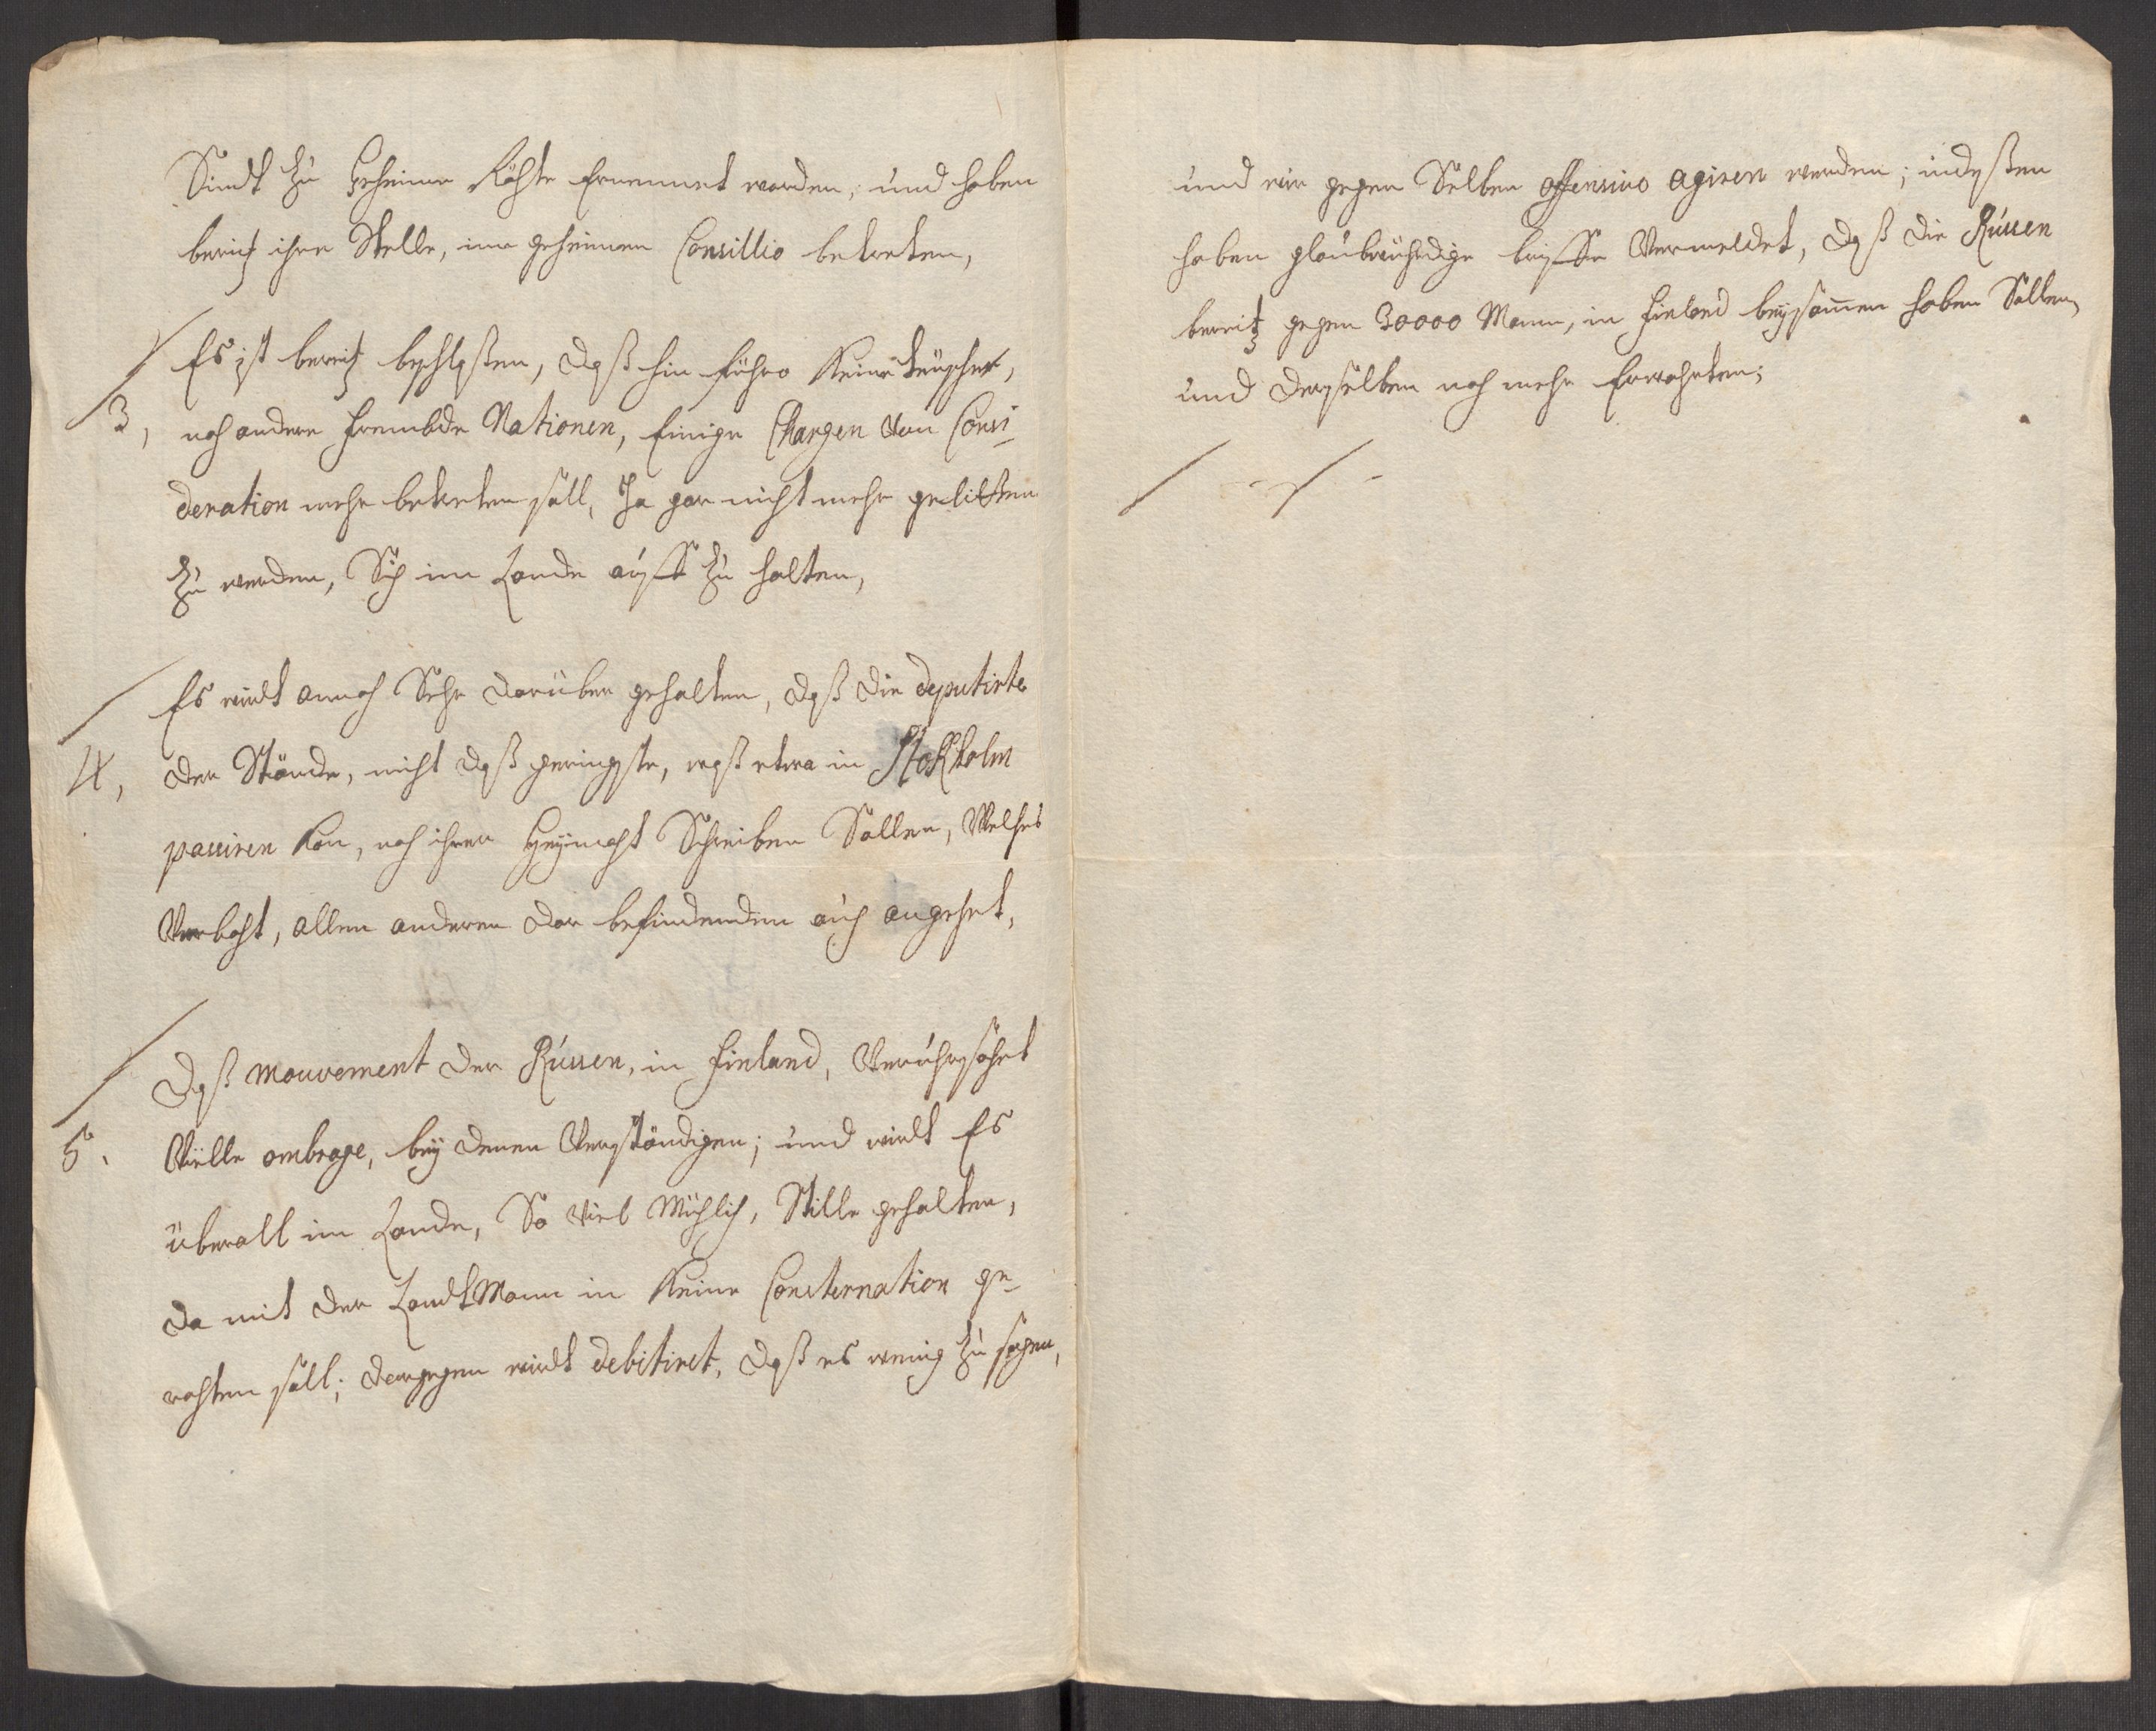 Sindt zu Geheime Rähte Ernennet worden, und haben
bereitz ihre Stelle, im geheimen Consillio betreten,
Es ist bereitz beschloßen, daß hin führo Keine teuscher,
3, noch andere frembde Nationen, Einige Chargen von Consi-
deration mehr betreten soll, Ja gar nicht mehr gelitten
zu werden, Sich im Lande auff zu halten,
Es wirdt annoch Sehr darüber gehalten, daß die deputirte
4, der Stände, nicht daß geringste, waß etwa in Stokholm
passiren Kan, nach ihrer Heymaht Schreiben Sollen, Welches
Verboht, allen anderen dar befindenden auch angehet,
Daß mouvement der Russen, in Finland, Veruhrsahet
5. Viele ombrage, bey denen Verständigen; und wirdt Es
überall im Lande, So viel Müchlich, Stille gehalten,
da mit der LandtMann in Keine Consternation ge-
rahten soll; dargegen wirdt debitiret, daß es wenig zu sagen,
und wir gegen Selben offensivo agiren werden; indeßen
haben glaubwürdige brieffe Vermeldet, daß die Russen
bereitz gegen 30000 Mann, in Finland beysam̄en haben Sollen,
und derselben noch mehr Erwahrten;